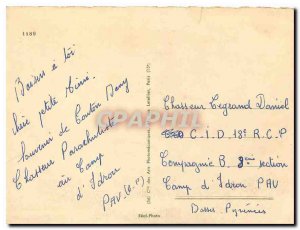 1180
Baisers à toi
chère petite Aimée.
Souvenir de Tonton Dany
Chasseur Parachutiste
au Camp
d'Idron
PAU (B-P)
Chasseur Legrand Daniel
C.I.D 18e R.C.P
Compagnie B. 3ème section
Camp d'Idron PAU
Basses Pyrénées
Réel-Photo
delcampe